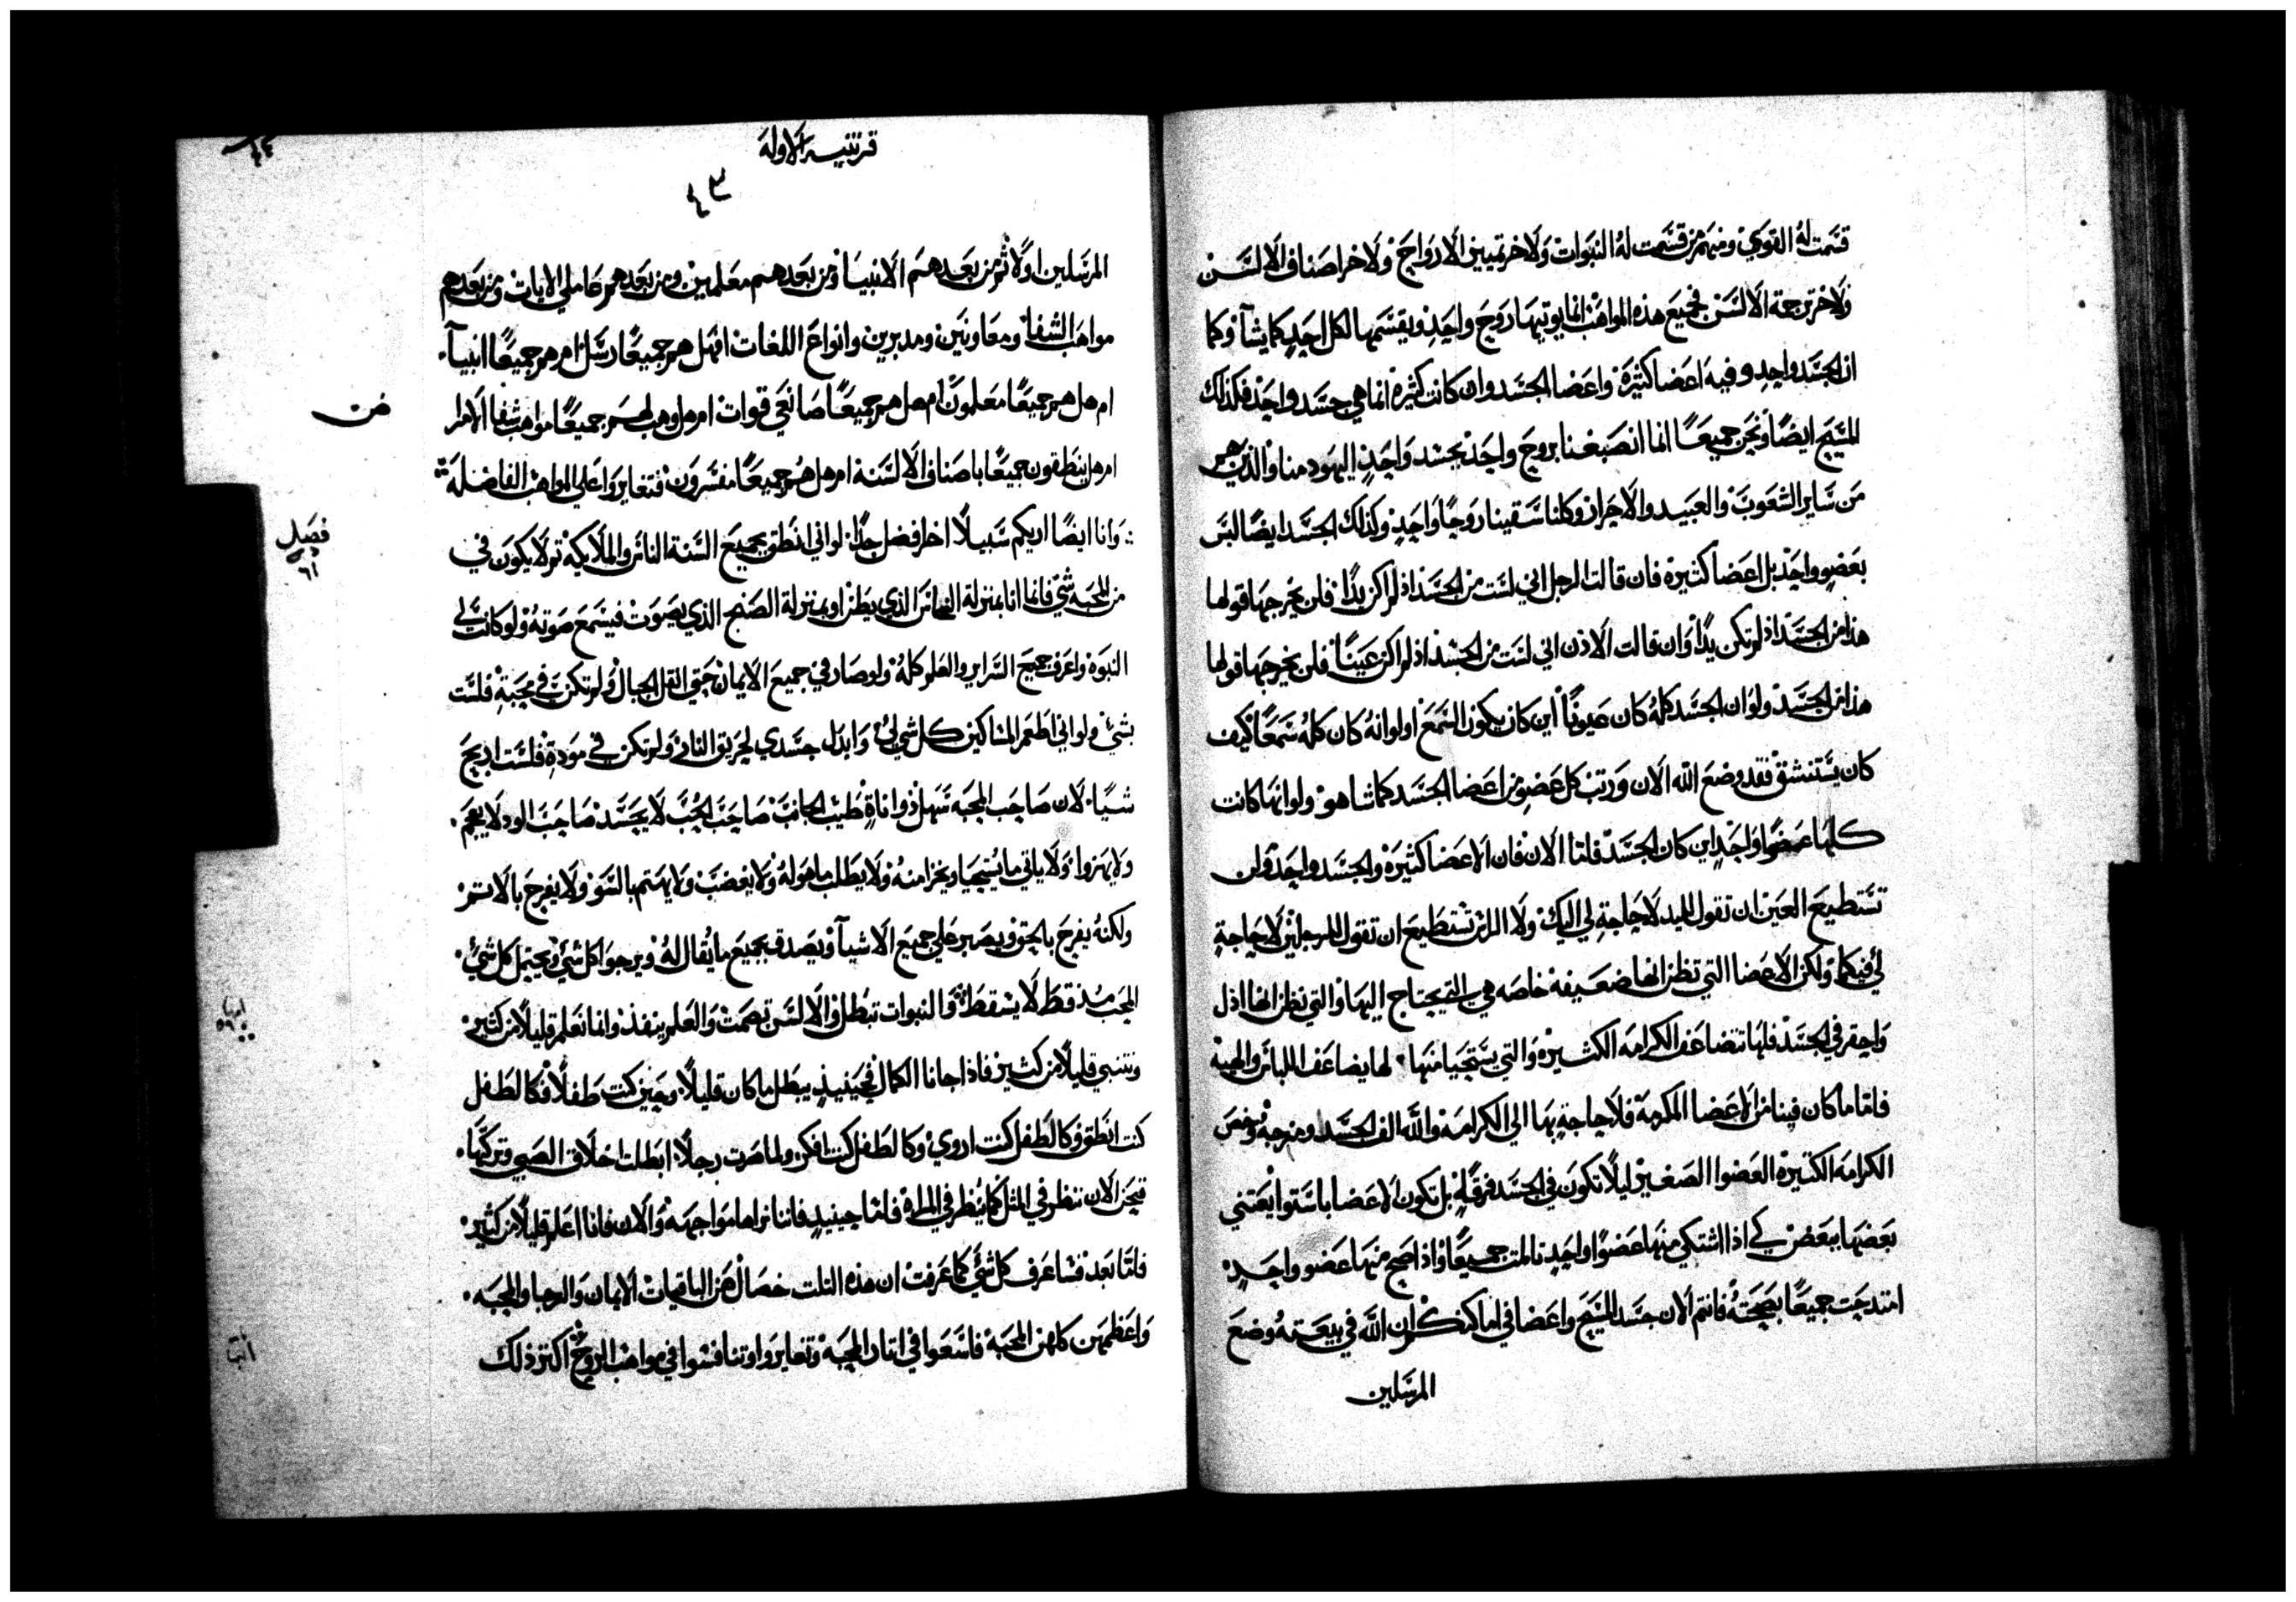 قسمت له القوي ومنهم من قسمت له النبوات ولاخر تمييز الارواح ولاخر اصناف الالسن
ولاخر ترجمة الالسن فجميع هذه المواهب انما يوتيها روح واحد ويقسمها لكل احد كما يشآ وكما
ان الجسد واحد وفيه اعضا كثيرة واعضا الجسد وان كانت كثيرة انما هي جسد واحد فكذلك
المسيح ايضًا ونحن جميعًا انما انصبغنا بروح واحد بجسد واحد اليهود منا والذين هم
من ساير الشعوب والعبيد والاحرار وكلنا سقينا روحًا واحد وكذلك الجسد ايضًا ليس
بعضو واحد بل اعضا كثيرة فان قالت الرجل اني لست من الجسد اذ لم اكن يدًا فلن يخرجها قولها
هذا من الجسد اذ لم تكن يدًا وان قالت الاذن اني لست من الجسد اذ لم اكن عينًا فلن يخرجها قولها
هذا من الجسد ولو ان الجسد كله كان عيونًا اين كان يكون السمع او لو انه كان كله سمعًا كيف
كان يستنشق فقد وضع الله الان ورتب كل عضو من اعضا الجسد كما شا هو ولو انها كانت
كلها عضوًا واحدٍ اين كان الجسد فاما الان فان الاعضا كثيرة والجسد واحد ولن
تستطيع العين ان تقول لليد لا حاجة لي اليك ولا الراس تستطيع ان تقول للرجلين لا حاجة
لي فيكما ولكن الاعضا التي تظن انها ضعيفة خاصه هي التي يحتاج اليها والتي نظن انها اذل
واحقر في الجسد فلها تتضاعف الكرامه الكثيره والتي يستحيا منها لها يضاعف اللباس والهيه
فاما ما كان فينا من الاعضا المكرمة فلا حاجة بها الي الكرامة والله الف الجسد ومزجه وخص
الكرامه الكثيرة العضوا الصغير ليلًا تكون في الجسد فرقة بل تكون الاعضا باستوا يعتني
بعضها ببعض كي اذا اشتكي منها عضوًا واحد تالمت جميعًا واذا صح منها عضو واحد
امتدحت جميعًا بصحته فانتم الان جسد المسيح واعضا في اماكنكم ان الله في بيعته وضع
المرسلين
قرنتيه الاوله
٤٣
المرسلين اولًا ثم من بعدهم الانبيا ومن بعدهم معلمين ومن بعدهم عاملي الايات ومن بعدهم
مواهب الشفا ومعاونين ومدبرين وانواع اللغات افهل هم جميعًا رسل ام هم جميعًا انبيآ
ام هل هم جميعًا معلمون ام هل هم جميعًا صانعي قوات ام هل وهب لهم جميعًا مواهب شفا الامراض
ام هل ينطقون جميعًا باصناف الالسنة ام هل هم جميعًا مفسرون فتغايروا علي المواهب الفاضلة
وانا ايضًا اريكم سبيلًا اخر افضل جدًا لو اني انطق بجميع السنة الناس والملايكه ثم لا يكون في
فصل
من المحبه شي فانما انا بمنزلة النحاس الذي يطن او بمنزلة الصنج الذي يصوت فيسمع صوته ولو كانت لي
النبوه واعرف جميع السراير والعلم كله ولو صار في جميع الايمان حتي انقل الجبال ولم تكن في محبةٍ فلست
بشي ولو اني اطعم المساكين كل شي لي وابدل جسدي لحريق النار ولم تكن في مودةٍ فلست اربح
شيًا لان صاحب المحبه سهل ذو اناةٍ طيب الجانب صاحب الحب لا يحسد صاحب الود لا يعجم
ولا يهزوا ولا ياتي ما يستحيا ويخزا منه ولا يطلب ما هو له ولا يغضب ولا يهتم بالسو ولا يفرح بالاثم
ولكنه يفرح بالحق ويصبر علي جميع الاشيآ ويصدق بجميع ما يقال له ويرجوا كل شي ويحتمل كل شي
المحب منذ قط لا يسقط والنبوات تبطل والالسن تصمت والعلم ينفذ وانما نعلم قليلًا من كثير
ونتنبي قليلًا من كثير فاذا جانا الكمال فحينيذٍ يبطل ما كان قليلًا وحين كنت طفلًا فكالطفل
كنت انطق وكالطفل كنت اروي وكالطفل كنت افكر ولما صرت رجلًا ابطلت اخلاق الصبي وتركتها
فنحن الان ننظر في المثل كما ينظر في المراة فاما حينيذٍ فاننا نراها مواجهه والان فانا اعلم قليلًا من كثير
فاما بعد فساعرف كل شي كما عرفت ان هذه الثلث خصال هن الباقيات الايمان والرجا والمحبه
واعظمهن كلهن المحبة فاسعوا في اثار المحبه وتغايروا وتنافسوا في مواهب الروح اكثر ذلك